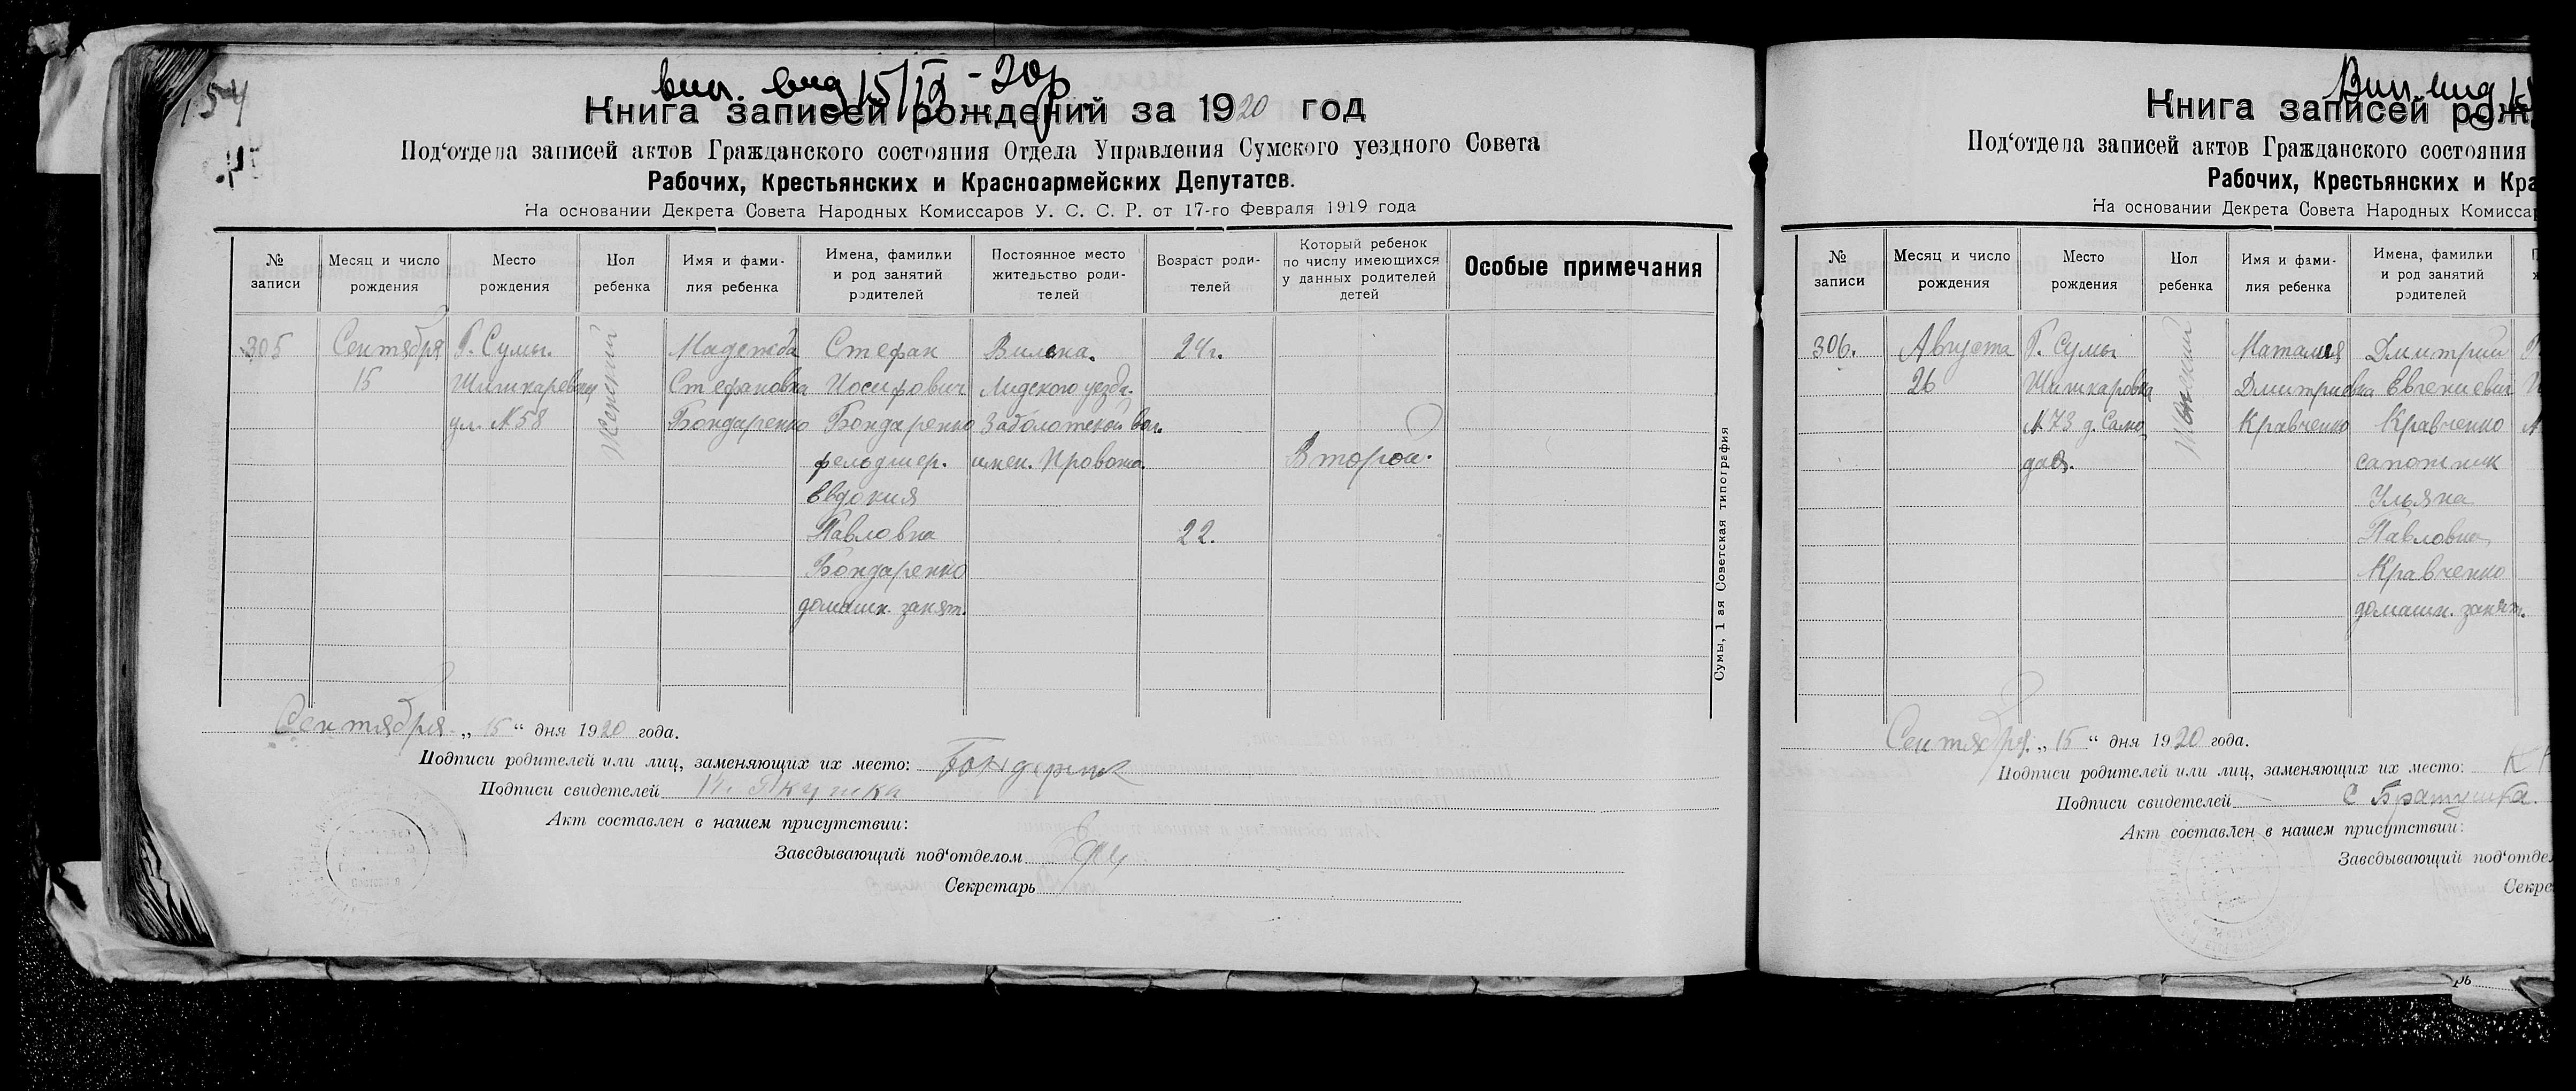 154
вип. вид 15/IX - 20р
Книга записей рождений за 1920 год
Под‘отдела записей актов Гражданского состояния Отдела Управления Сумского уездного Совета
Рабочих, Крестьянских и Красноармейских Депутатов.
На основании Декрета Совета Народных Комиссаров У. С. С. Р. от 17-го Февраля 1919 года
№ записи
Месяц и число рождения
Место рождения
Пол ребенка
Имя и фамилия ребенка
Имена, фамилии и род занятий родителей
Постоянное место жительство родителей
Возраст родителей
Который ребенок по числу имеющихся у данных родителей детей
Особые примечания
305
Сентября
15
Г. Сумы.
Шишкаревская
ул. №58
Женский
Надежда
Стефановна
Бондаренко
Стефан
Иосифович
Бондаренко
фельдшер.
Евдокия
Павловна
Бондаренко
домашн. занят.
Виленск.
Лидского уезда.
Заболотской вол.
имен.
24г.
22.
Второй.
Сумы, 1 ая Советская типография
Сентября „ 15 “ дня 1920 года.
Подписи родителей или лиц, заменяющих их место:
Подписи свидетелей
Акт составлен в нашем присутствии:
Заведывающий под‘отделом
Секретарь
Вип. вид
Книга записей рож
Под‘отдела записей актов Гражданского состояния
Рабочих, Крестьянских и Кра
На основании Декрета Совета Народных Комисса
№ записи
Месяц и число рождения
Место рождения
Пол ребенка
Имя и фамилия ребенка
Имена, фамилии и род занятий родителей
306.
Августа
26
Г. Сумы
Шишкаровка
№73
Женский
Наталия
Дмитриевна
Кравченко
Дмитрий
Евгениевич
Кравченко
сапожник
Ульяна
Павловна
Кравченко
домашн. занят.
Сентября. „ 15 “ дня 1920 года.
Подписи родителей или лиц, заменяющих их место:
Подписи свидетелей С Братушка.
Акт составлен в нашем присутствии:
Заведывающий под‘отде
Секре